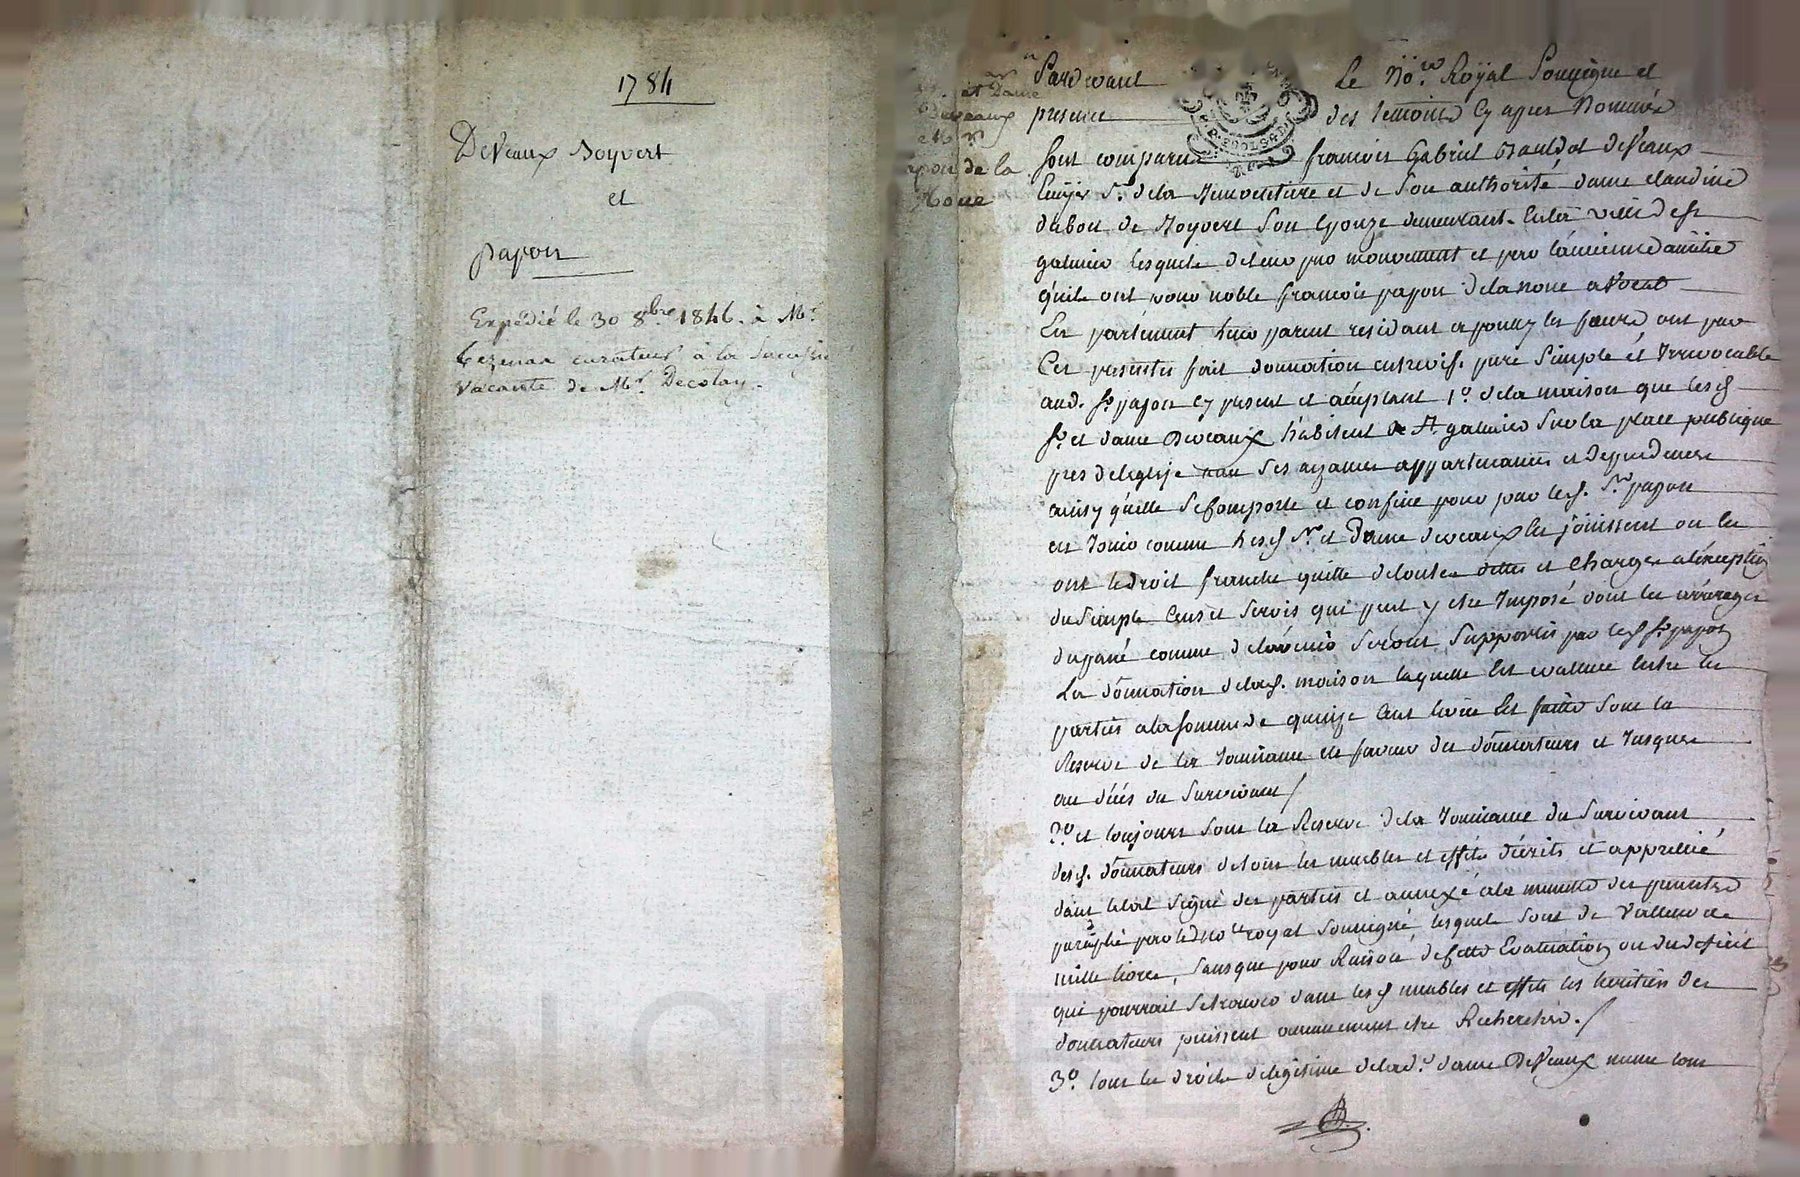 1784
DeVeaux Boyvert
et
papon
Expédié le 30 8bre 1846. à Mr
curateur à la Succession
Vacante de Mr Decolay.
et Dame
Deveaux
et Mr
apon de la
Noue
Pardevant Le No.re Royal Soussigné et
presence des temoins Cy apres Nommés
sont comparus francois Gabriel DeVeaux
Ecuyer Sr de la et de Son authorité dame claudine
dubois de Boyvert Son Epouze demeurant en la ville de St
galmier lesquels de leur pro mouvement et pour l'ancienne amitié
qu'ils ont pour noble francois papon dela noue avocat
En parlement leur parent residant a les ont par
Ces presentes fait donnation entrevifs pure Simple et Irrevocable
aud. Sr papon Cy present et acceptant 1o dela maison que lesd
Sr et dame Deveaux habitent a St galmier Sur la place publique
pres de leglise ses aizances appartenances et Dependances
ainsy qu'elle Se Comporte et confine pour par led. Sr papon
en Jouir comme lesd Sr et Dame deveaux en jouissent ou en
ont le droit franche quitte de toutes dettes et charges a lexception
du Simple Cens et Servis qui peut y etre Imposé dont les arrérages
du passé comme de lavenir Seront Supportés par led Sr papon
La donnation de lad. maison laquelle Est evaluée Entre les
parties a la Somme de quinze Cent livres Est faitte Sous la
Reserve de la Jouissance en faveur des donnateurs et Jusques
au décés du Survivant /
2o et toujours Sous la Reserve dela Jouissance du Survivant
desd. donnateurs de tous les meubles et effets décrits et appretiés
dans letat Signé des parties et annexé a la minutte des presentes
paraphé par led no.re royal Soussigné, lesquels Sont de Valleur de
mille livres, Sans que pour Raison de Cette Evaluation ou du deficit
qui pourrait Se trouver dans lesd meubles et effets les heritiers des
donnateurs puissent aucunement etre Recherchés. /
3o tous les droits de legitime de lad.e dame DeVeaux meme tous